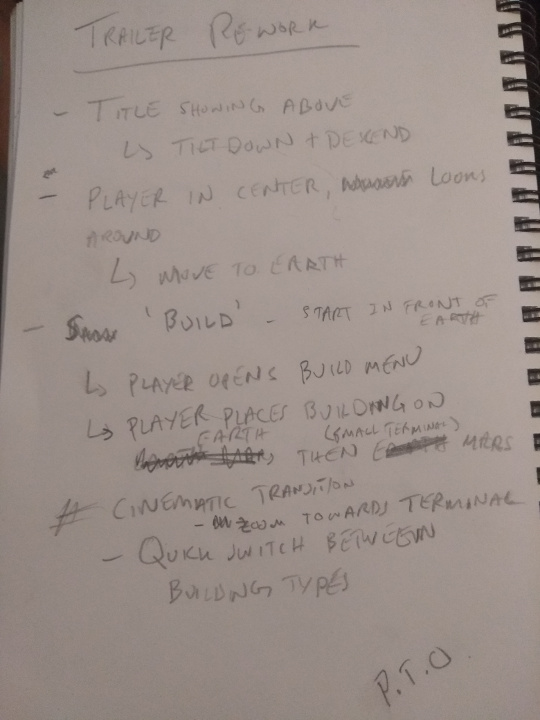 TRAILER REWORK
- TITLE SHOWING ABOVE
↳ TILT DOWN + DESCEND
- PLAYER IN CENTER, LOOKS
AROUND
↳ MOVE TO EARTH
- 'BUILD' - START IN FRONT OF
EARTH
↳ PLAYER OPENS BUILD MENU
↳ PLAYER PLACES BUILDING ON
EARTH (SMALL TERMINAL)
THEN MARS
# CINEMATIC TRANSITION
- ZOOM TOWARDS TERMINAL
- QUICK SWITCH BETWEEN
BUILDING TYPES
P.T.O.